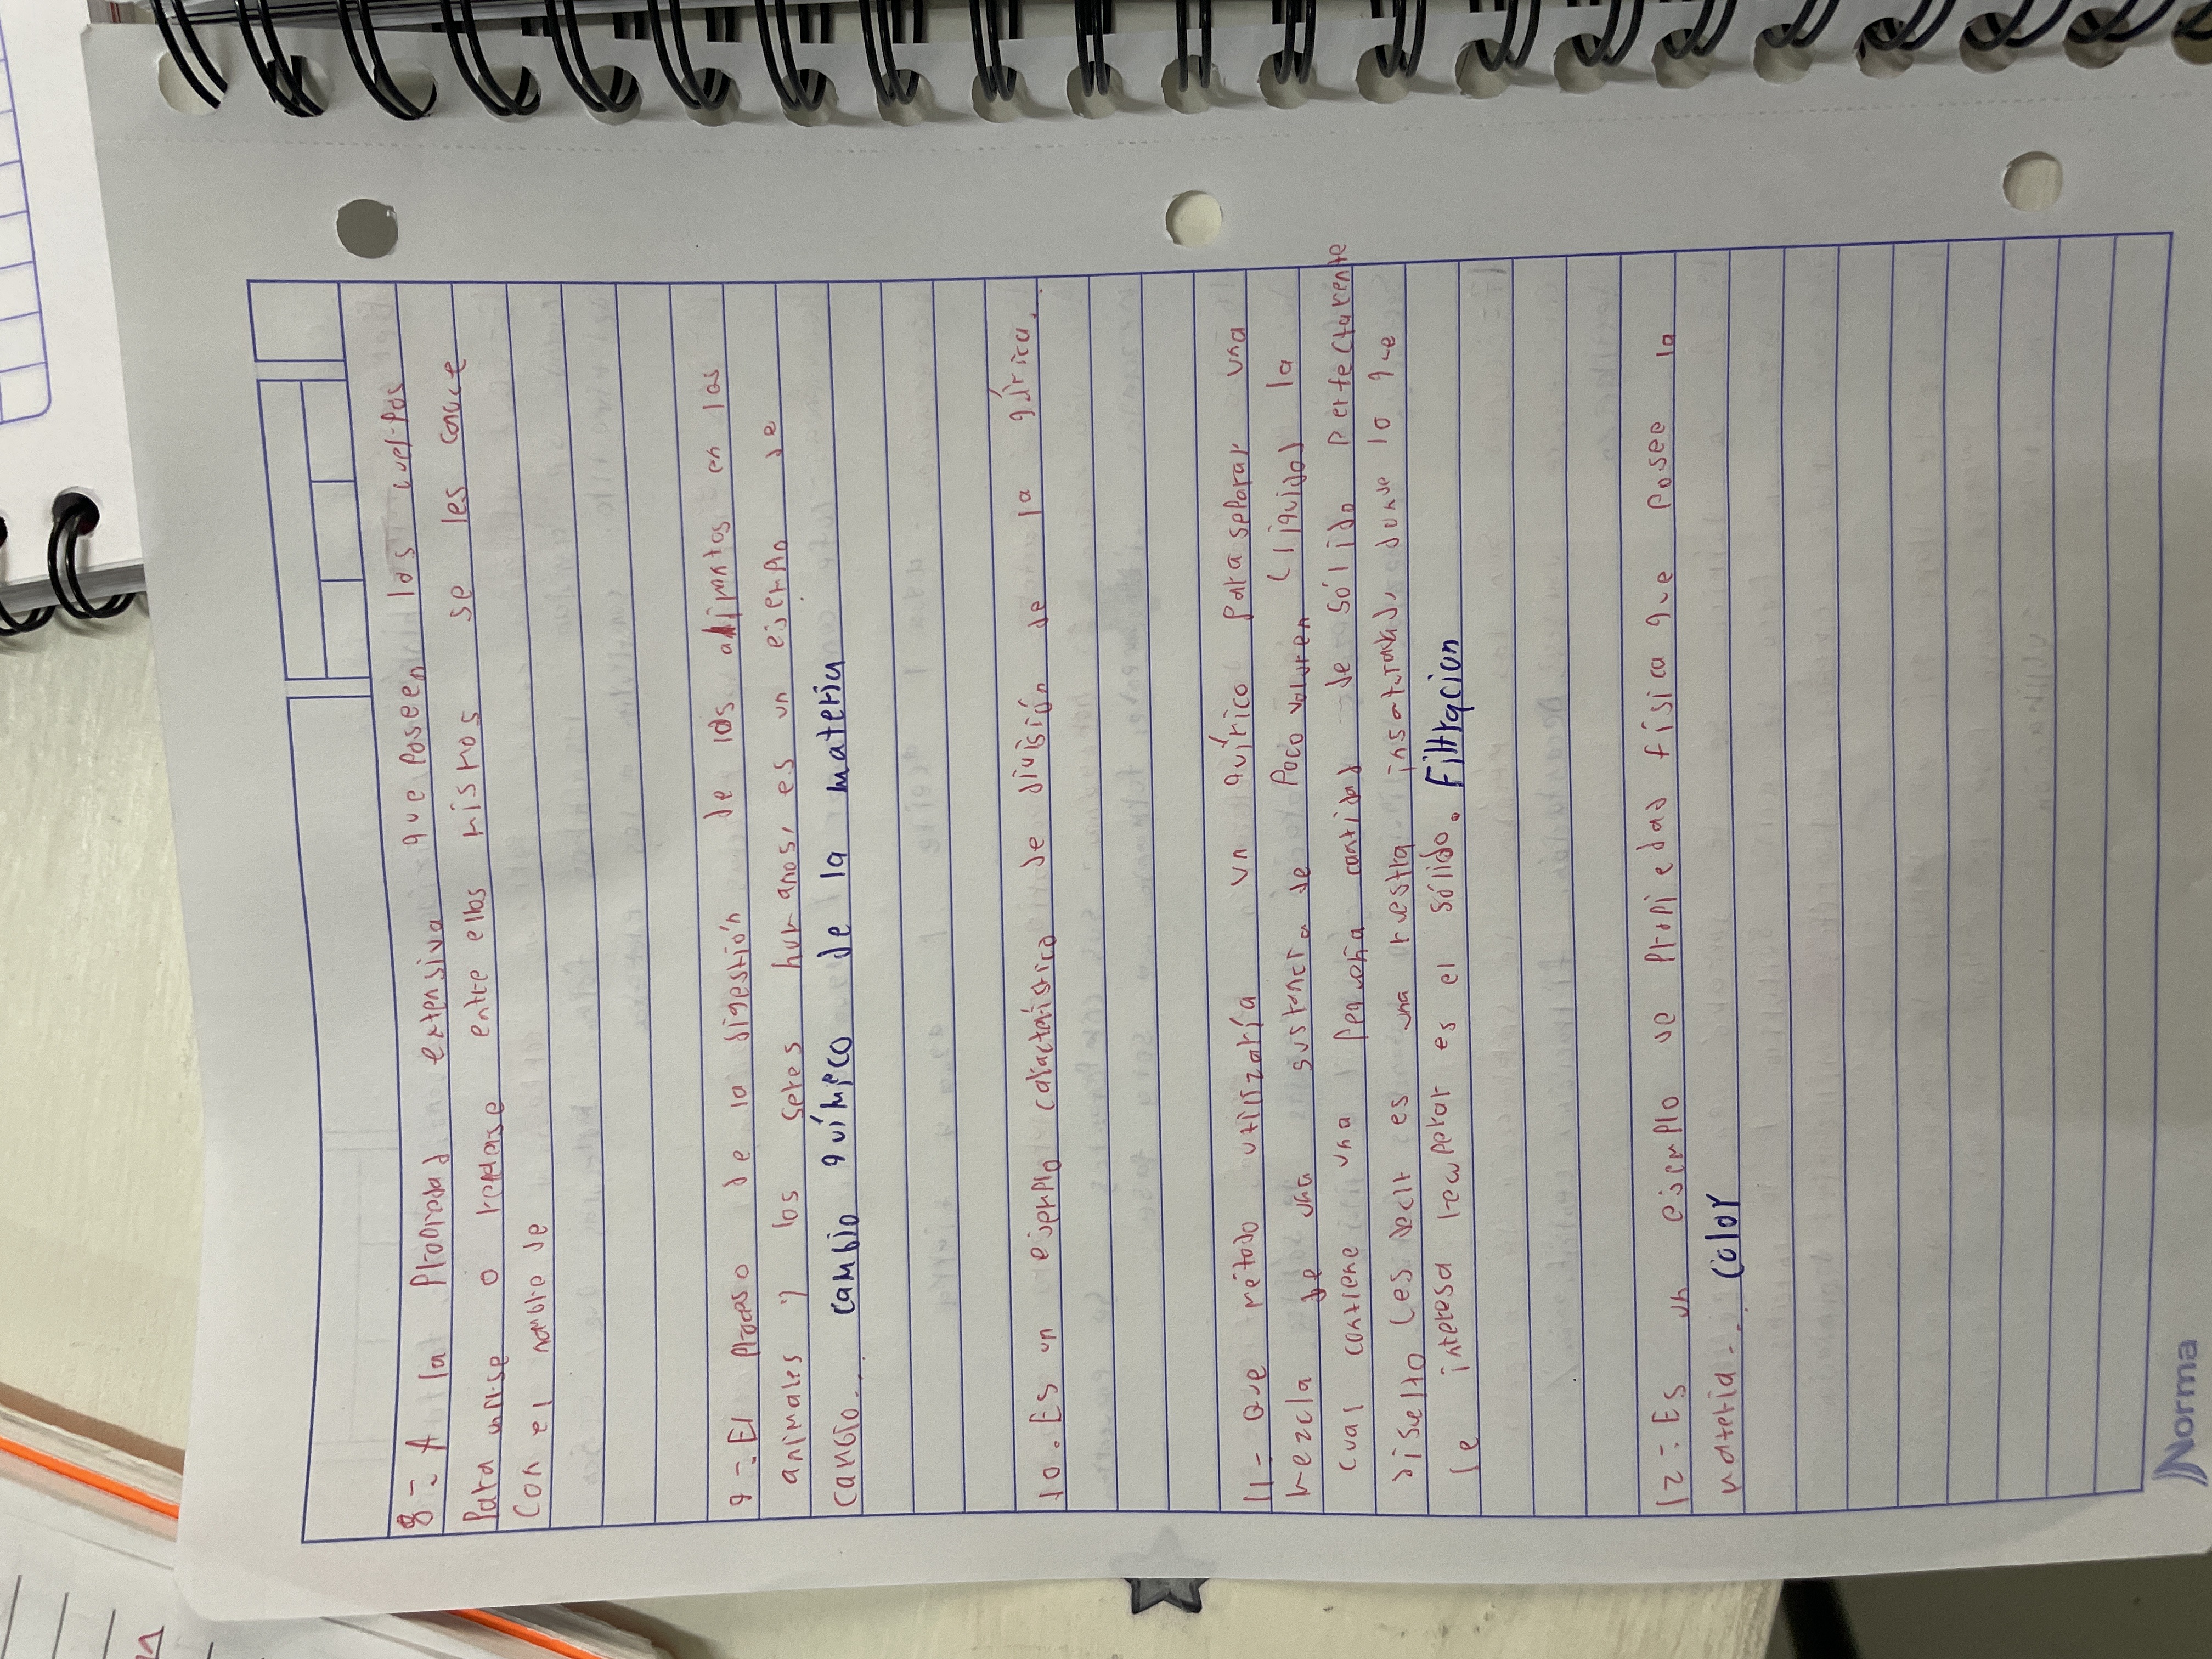 8-. A la Propiedad extensiva que poseen los cuerpos
Para unirse o repelerse entre ellos mismos se les conoce
Con el nombre de
9-. El proceso de la digestión de los alimentos en los
animales y los seres humanos, es un ejemplo de
cambio... cambio químico de la materia
10. Es un ejemplo característico de división de la química.
11- Que método utilizaría un químico para separar una
mezcla de una sustancia de poco volumen (liquida) la
cual contiene una pequeña cantidad de sólido perfectamente
disuelto (es decir es una muestra insaturada, donde lo que
le interesa recuperar es el sólido. Filtracion
12-. Es un ejemplo de propiedad física que posee la
materia... Color
Norma